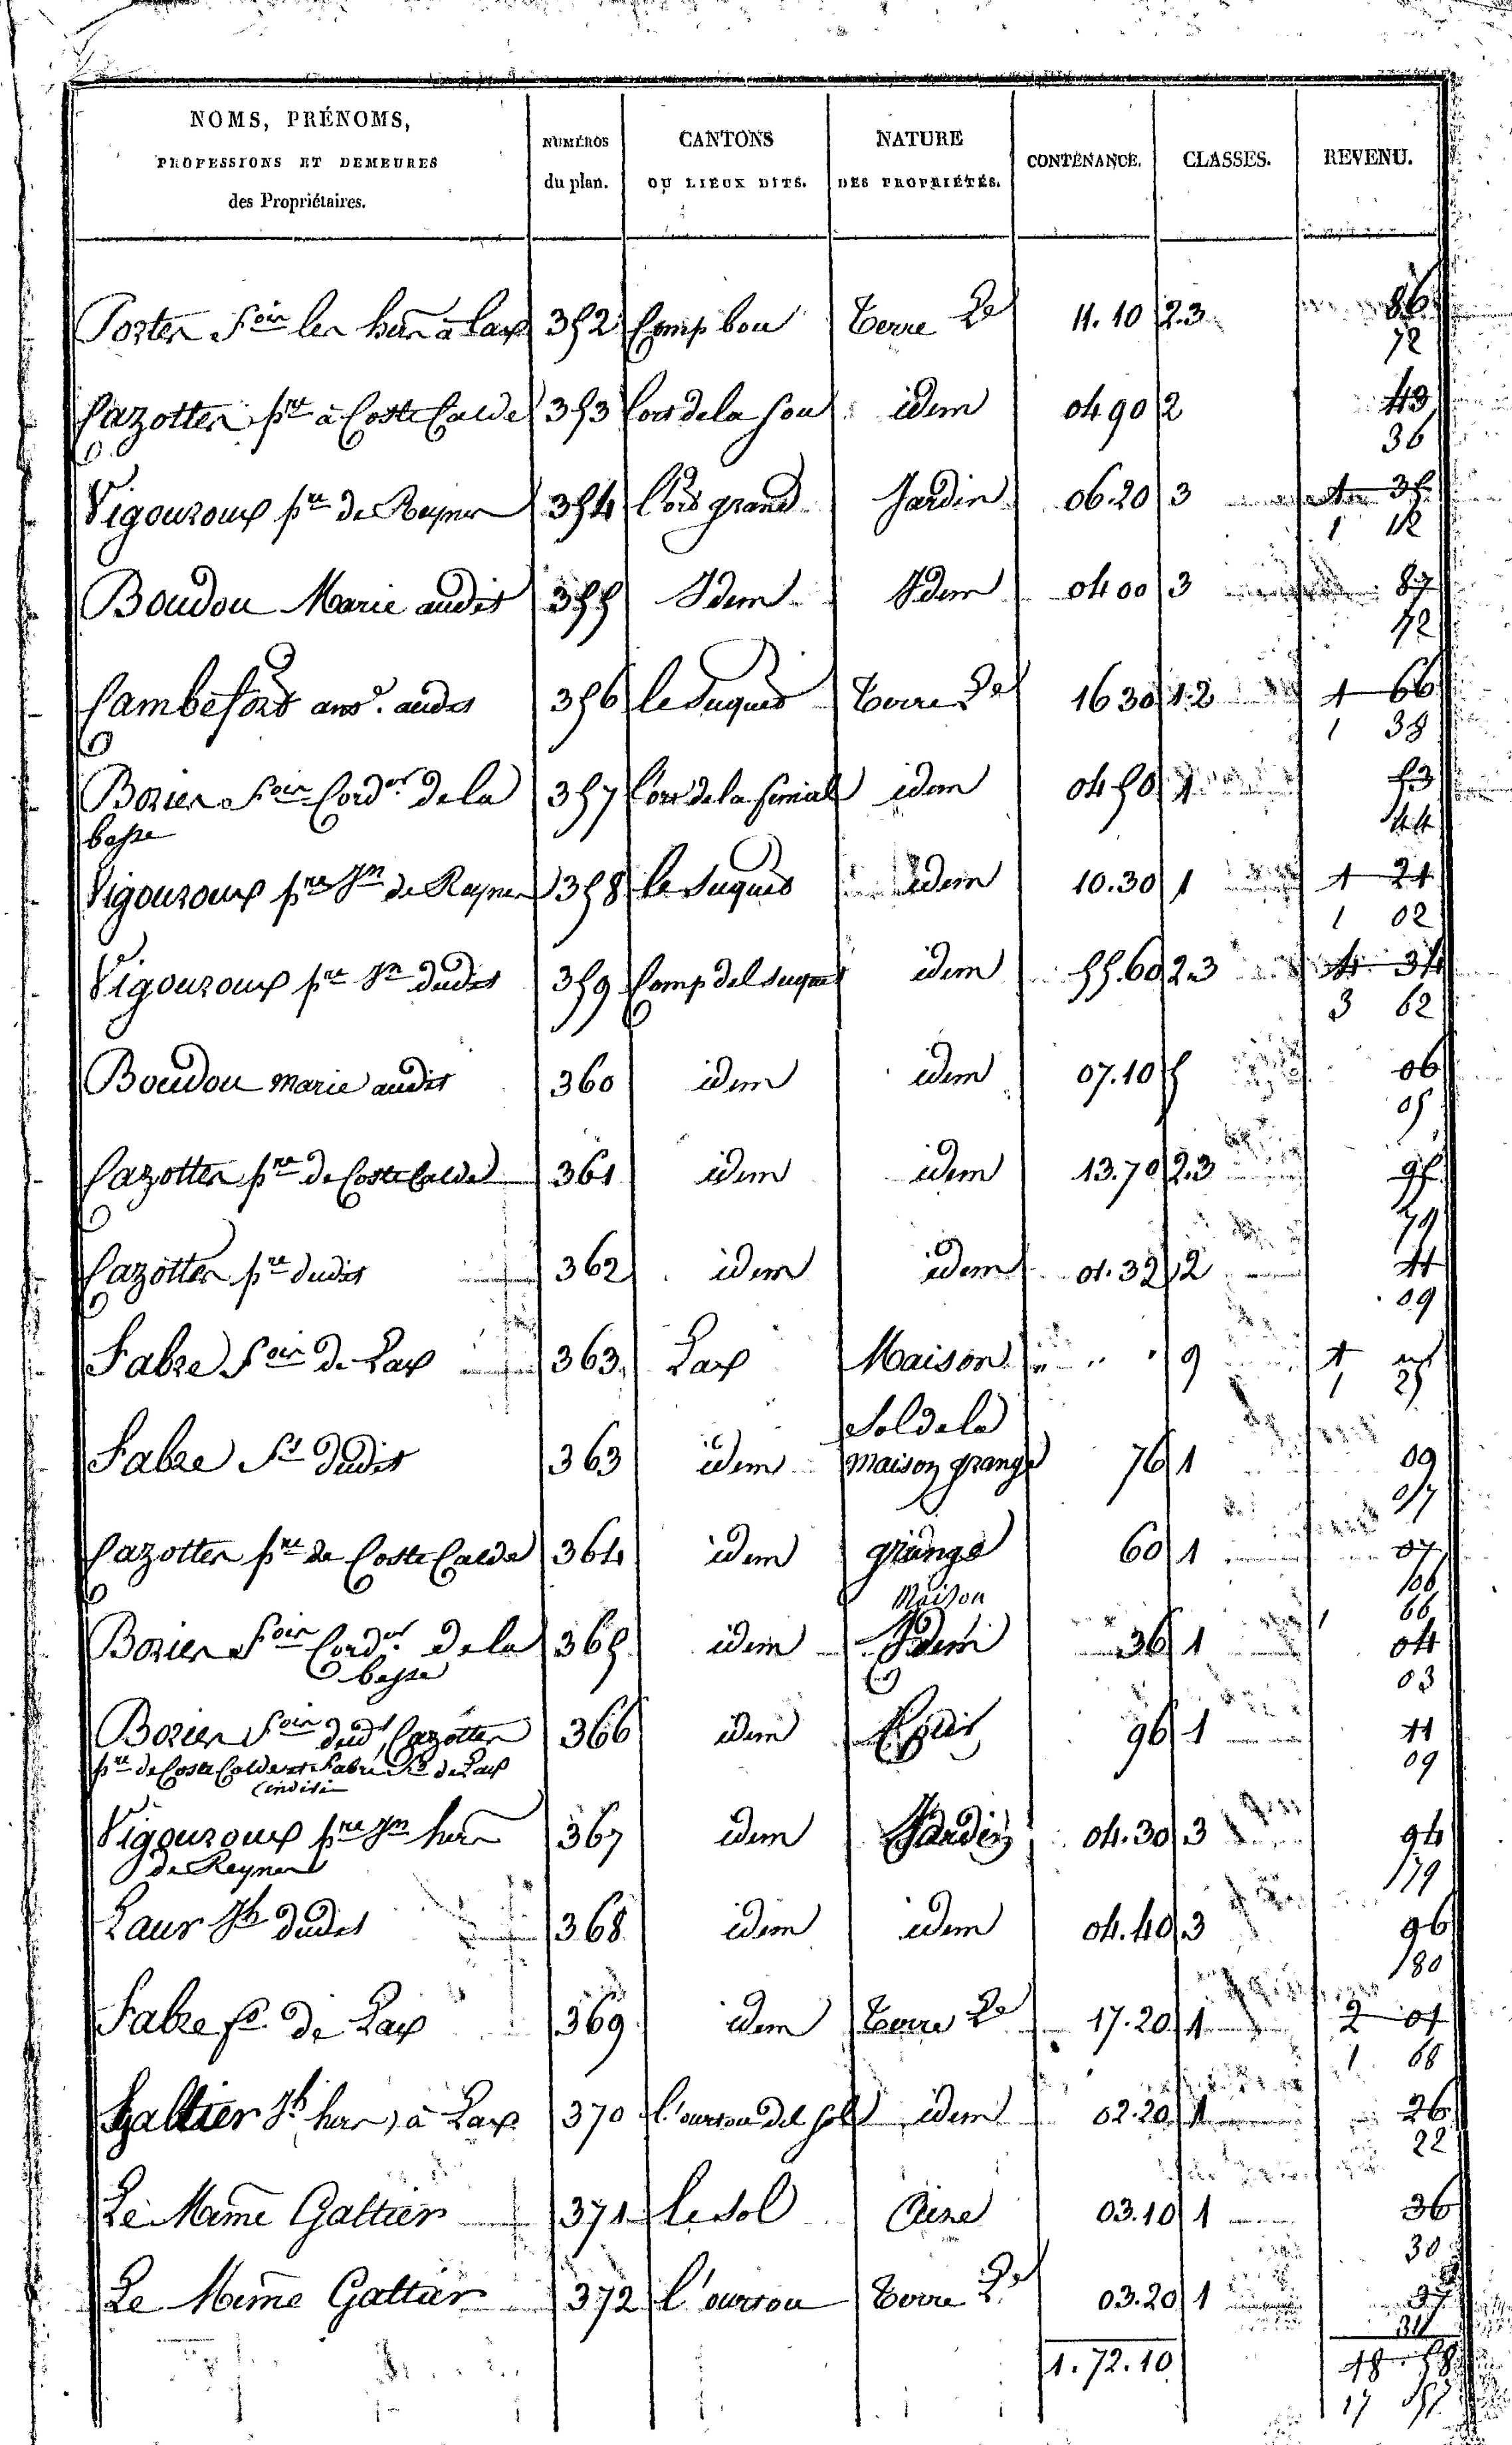 NOMS, PRÉNOMS,
PROFESSIONS ET DEMEURES
des Propriétaires.
NUMÉROS
du plan.
CANTONS
OU LIEUX DITS.
NATURE
DES PROPRIÉTÉS.
CONTENANCE.
CLASSES.
REVENU.
352 Terre Le 11.10 2.3 86
72
Cazottes pre à Coste Calde 353 idem 04 90 2 43
36
Vigouroux pre de Reynes 354 l'ort grand Jardin 06.20 3 1 35
1 12
Boudou Marie audit 355 Idem Idem 04 00 3 87
72
Cambefort ant. audit 356 le Suquet Terre Le 16 30 1.2 1 66
1 38
Bories Foix Cordr de la 357 idem 04 50 1 53
basse 44
Vigouroux pre Jn de Reynes 358 le Suquet idem 10.30 1 1 21
1 02
Vigouroux pre Jn dudit 359 Camp del suquet idem 55.60 2.3 4 34
3 62
Boudou Marie audit 360 idem idem 07.10 5 06
05
Cazottes pre de Coste Calde 361 idem idem 13.70 2.3 95
79
Cazottes pre dudit 362 idem idem 01.32 2 11
09
Fabre Foix de Lax 363 Lax Maison " " " 9 1
1 25
Sol de la
Fabre dudit 363 idem maison grange 76 1 09
07
Cazottes pre de Coste Calde 364 idem grange 60 1 07
106
Maison 66
Bories Foix Cordr de la 365 idem Idem 36 1 04
basse 03
Bories Foix dud, Cazottes 366 idem 96 1 11
pre de Coste Calde et Fabre de Lax 09
indivis
Vigouroux pre Jn hers 367 idem Jardin 04.30 3 94
de Reynes 179
Laur Jh dudit 368 idem idem 04.40 3 96
180
Fabre de Lax 369 idem Terre Le 17.20 1 2 01
1 68
Galtier Jh hers à Lax 370 l'ourtou del sol idem 02.20 1 26
22
Le Même Galtier 371 le Sol Aire 03.10 1 36
30
Le Même Galtier 372 l'ourtou Terre Le 03.20 1 37
31
1.72.10 18 58
17